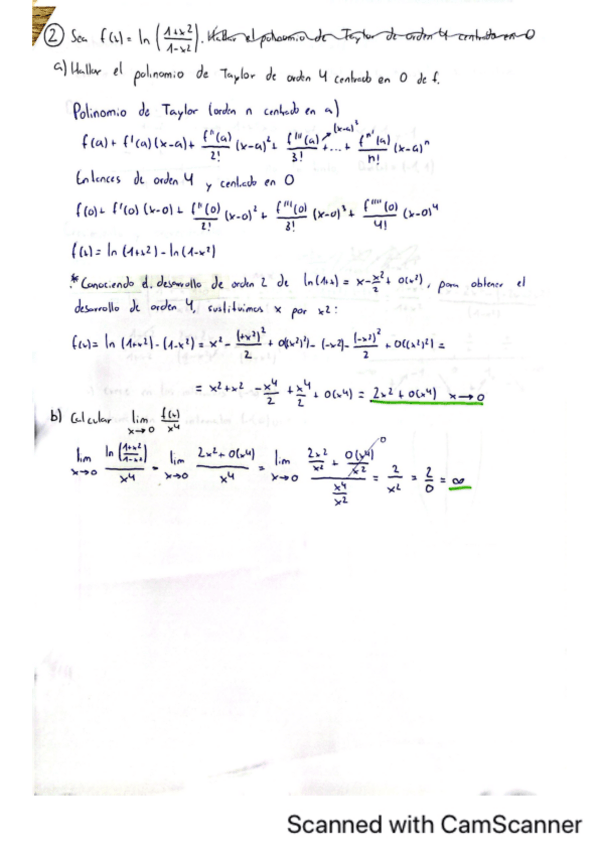 ② Sea f(x) = ln (1+x²/1-x²). Hallar el polinomio de Taylor de orden 4 centrado en 0
a) Hallar el polinomio de Taylor de orden 4 centrado en 0 de f.
Polinomio de Taylor (orden n centrado en a)
f(a) + f'(a)(x-a) + f''(a)/2! (x-a)² + f'''(a)/3! (x-a)³ + ... + fⁿ'(a)/n! (x-a)ⁿ
Entonces de orden 4 y centrado en 0
f(0) + f'(0)(x-0) + f''(0)/2! (x-0)² + f'''(0)/3! (x-0)³ + f''''(0)/4! (x-0)⁴
f(x) = ln(1+x²) - ln(1-x²)
* Conociendo el desarrollo de orden 2 de ln(1+x) = x - x²/2 + o(x²), para obtener el
desarrollo de orden 4, sustituimos x por x2:
f(x) = ln(1+x²) - (1-x²) = x² - (+x²)²/2 + o((x²)²) - (-x2) - (-x²)²/2 + o((x²)²) =
= x² + x² - x⁴/2 + x⁴/2 + o(x⁴) = 2x² + o(x⁴) x→0
b) Calcular lim x→0 f(x)/x⁴
lim x→0 ln(1+x²/1-x²)/x⁴ = lim x→0 2x² + o(x⁴)/x⁴ = lim x→0 (2x²/x² + o(x⁴)/x² 0)/(x⁴/x²) = 2/x² = 2/0 = ∞
Scanned with CamScanner